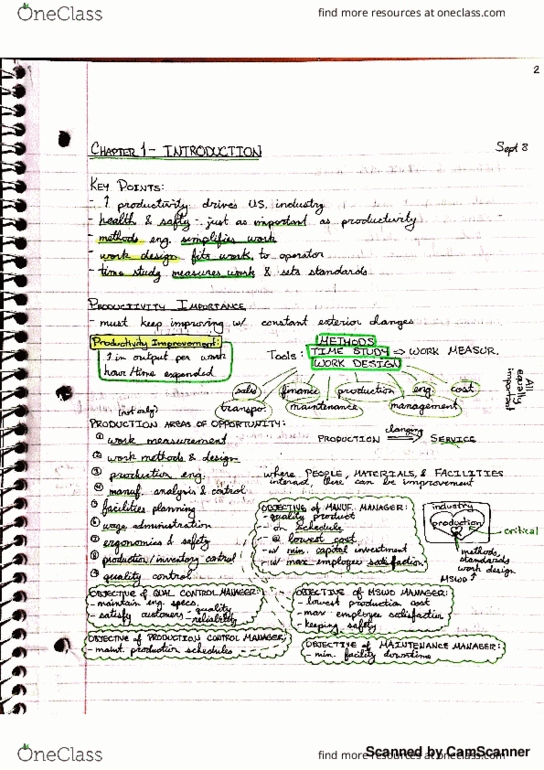 OneClass
find more resources at oneclass.com
2
CHAPTER 1 - INTRODUCTION
Sept 8
KEY POINTS:
- ↑ productivity drives U.S. industry
- health & safty - just as important as productivity
- methods eng. simplifies work
- work design fits work to operator
- time study measures work & sets standards
PRODUCTIVITY IMPORTANCE
- must keep improving w/ constant exterior changes
Productivity Improvement:
↑ in output per work
hour/time expended
Tools:
METHODS
TIME STUDY ⇒ WORK MEASUR.
WORK DESIGN
sales
finance
production
eng
cost
transpo.
maintenance
management
All equally important
(not only)
PRODUCTION AREAS OF OPPORTUNITY:
PRODUCTION changing ⇒ SERVICE
① work measurement
② work methods & design
③ production eng.
④ manuf. analysis & control
⑤ facilities planning
⑥ wage administration
⑦ ergonomics & safety
⑧ production/inventory control
⑨ quality control
where PEOPLE, MATERIALS, & FACILITIES
interact, there can be improvement
OBJECTIVE of MANUF. MANAGER:
- quality product
- on schedule
- @ lowest cost
- w/ min. capital investment
- w/ max employee satisfaction
industry
production
critical
methods,
standards
work design
MSWD ↑
OBJECTIVE of QUAL CONTROL MANAGER:
- maintain eng. specs.
- satisfy customers - quality
- reliability
OBJECTIVE of MSWD MANAGER:
- lowest production cost
- max employee satisfaction
- keeping safety
OBJECTIVE of PRODUCTION CONTROL MANAGER:
- maint. production schedules
OBJECTIVE of MAINTENANCE MANAGER:
- min. facility downtime
OneClass
find more resources at oneclass.com
Scanned by CamScanner